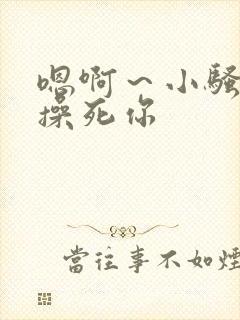 嗯啊～小骚
操死你
當往事不如煙